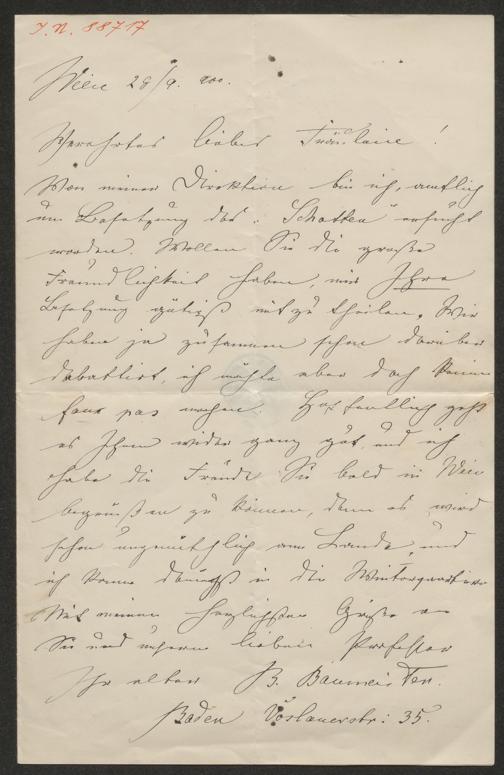 I. N. 88717
Wien 28/9. 900.
Verehrtes liebes Fräulein!
Von meiner Direktion bin ich, amtlich
um Besetzung des „Schatten" ersucht
worden. Wollen Sie die große
Freundlichkeit haben, mir Ihre
Besetzung gütigst mitzutheilen. Wir
haben ja zusammen schon darüber
debattirt, ich möchte aber doch keinen
faux pas machen. Hoffentlich geht
es Ihnen wieder ganz gut, und ich
habe die Freude Sie bald in Wien
begrüßen zu können, denn es wird
schon ungemüthlich am Lande, und
ich komme in die Winterquartiere
Mit meinen herzlichsten Grüßen an
Sie und unseren lieben Professor
Ihr alter B. Baumeister.
Baden Vöslauerstr: 35.